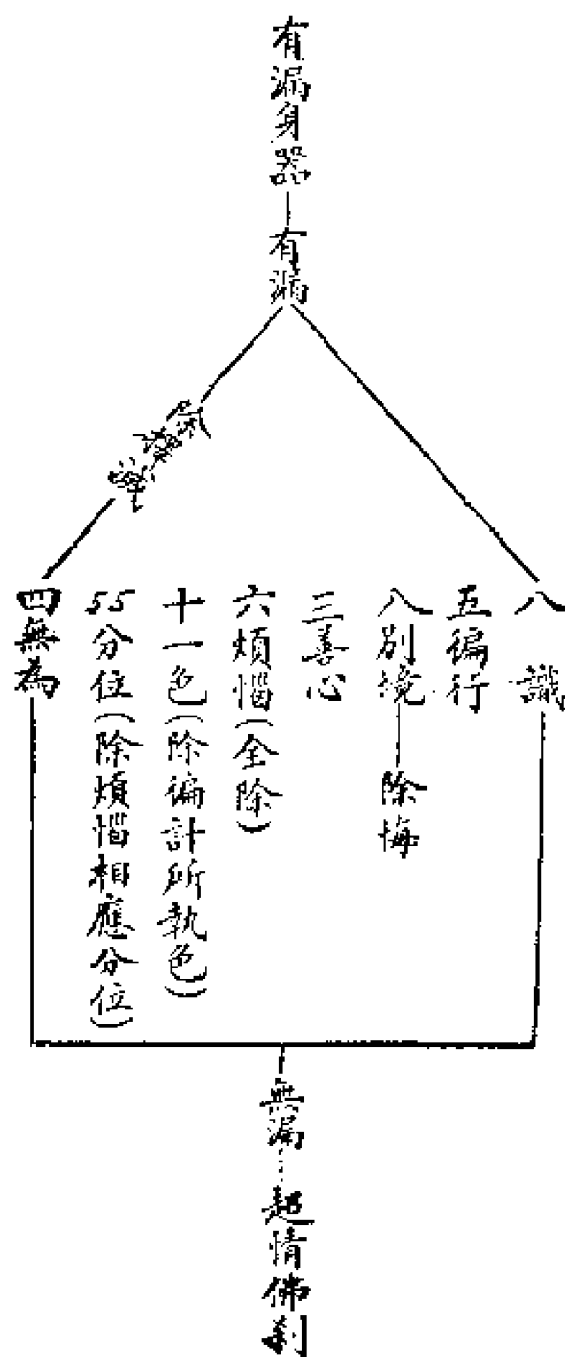 有漏身器
有漏
八識
五徧行
八別境—除悔
三善心
六煩惱(全除)
十一色(除徧計所執色)
55分位(除煩惱相應分位)
四無為
無漏…超情佛剎